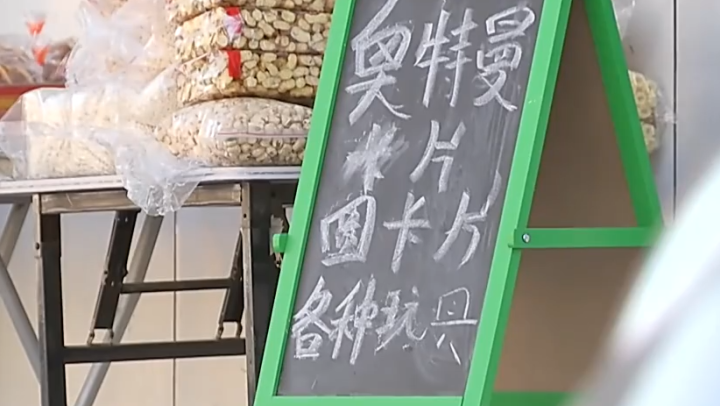 奥特曼
卡片
圆卡片
各种玩具